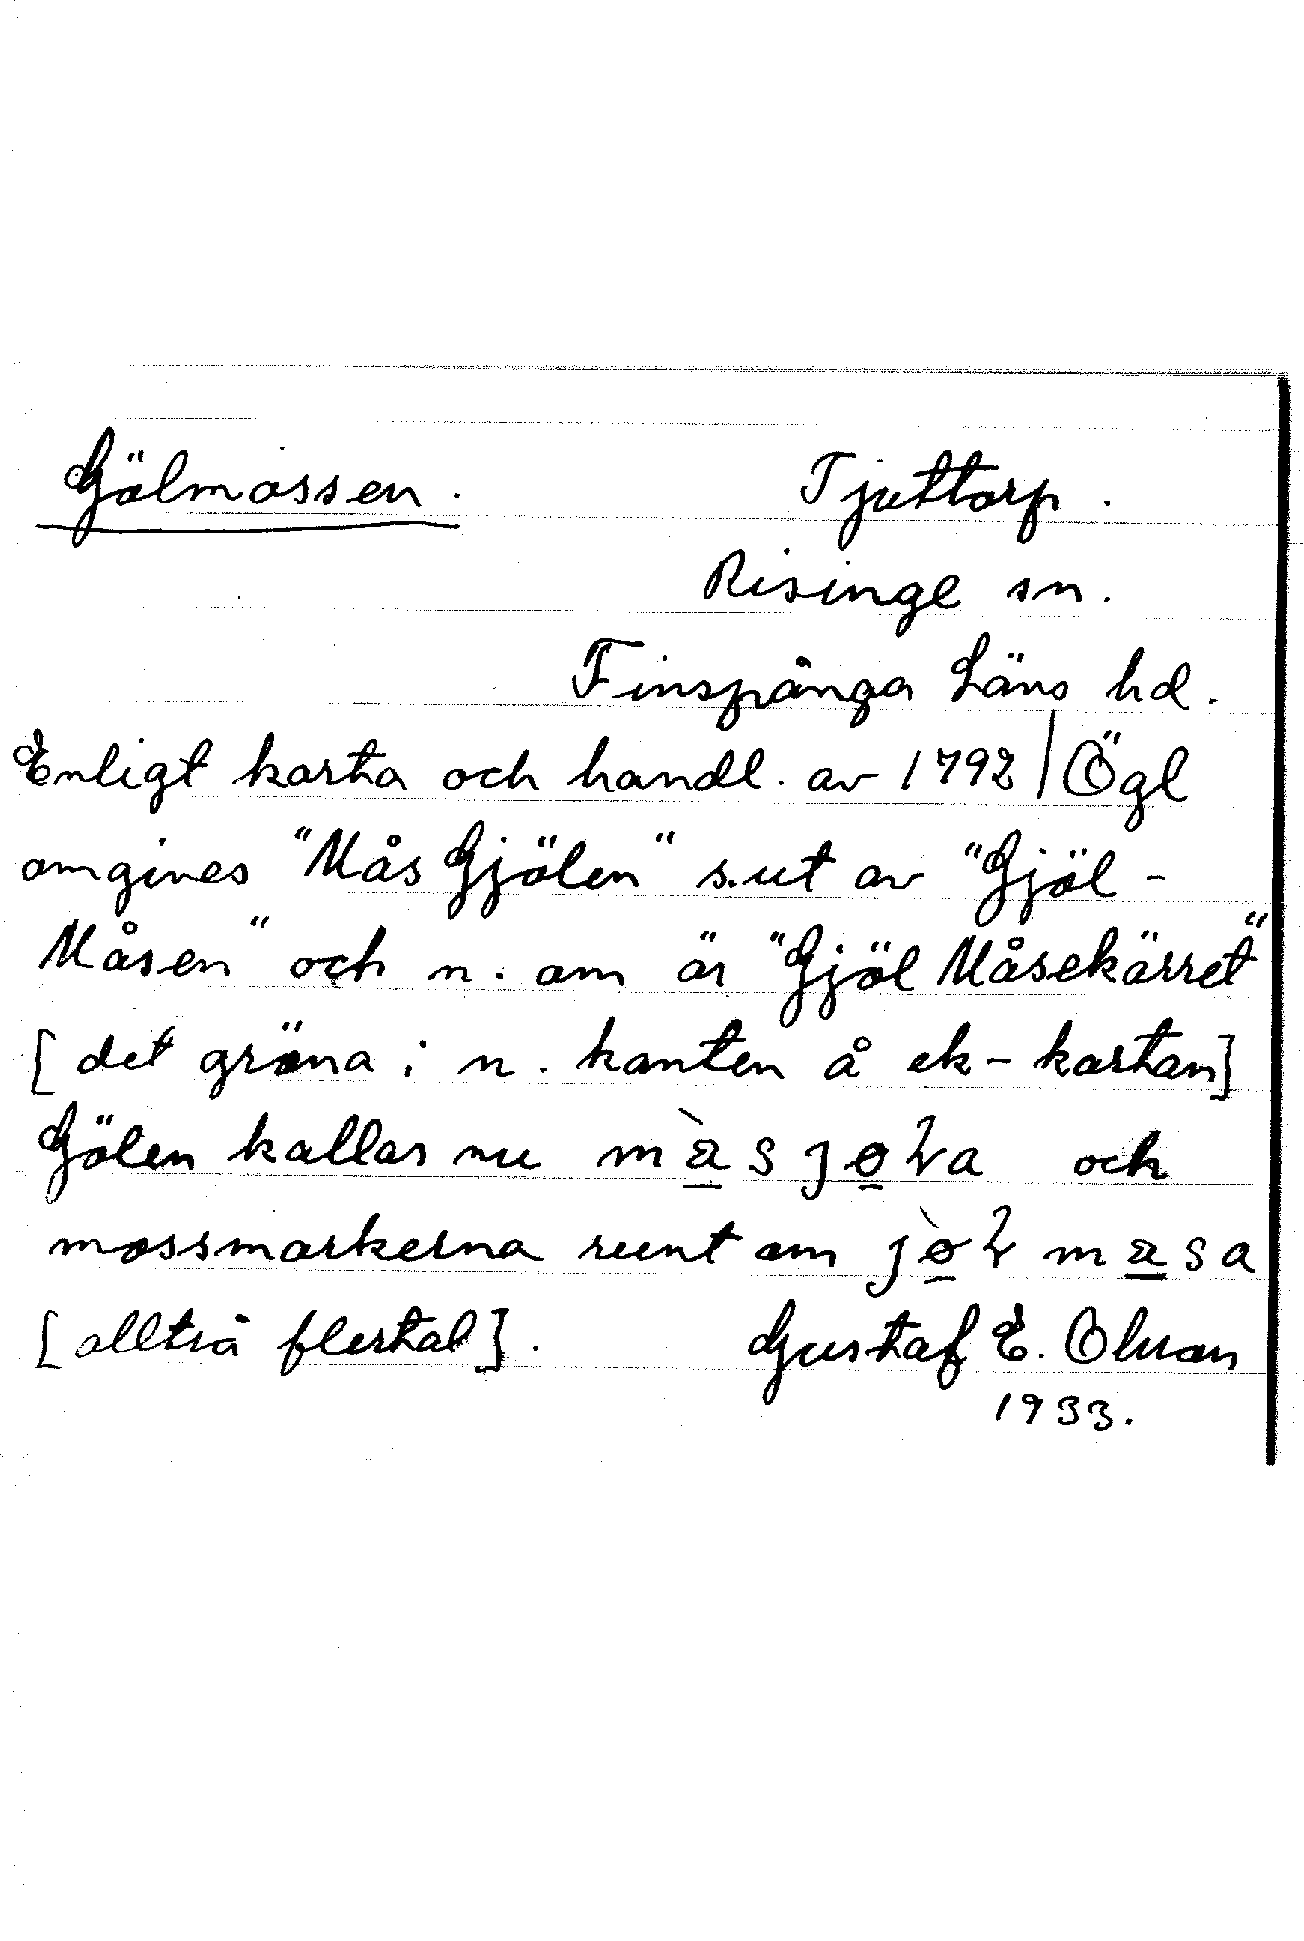 Gölmossen. Tjuttorp.
Risinge sn.
Finspånga Läns hd.
Enligt karta och handl. av 1792 | Ögl
omgives "Mås Gjölen" s.ut av "Gjöl-
Måsen" och n. om är "Gjöl Måsekärret"
[det gröna i n. kanten å ek-kartan]
Gölen kallas nu
och
mossmarkerna runt om
[alltså flertal]. Gustaf E. Olsson
1933.